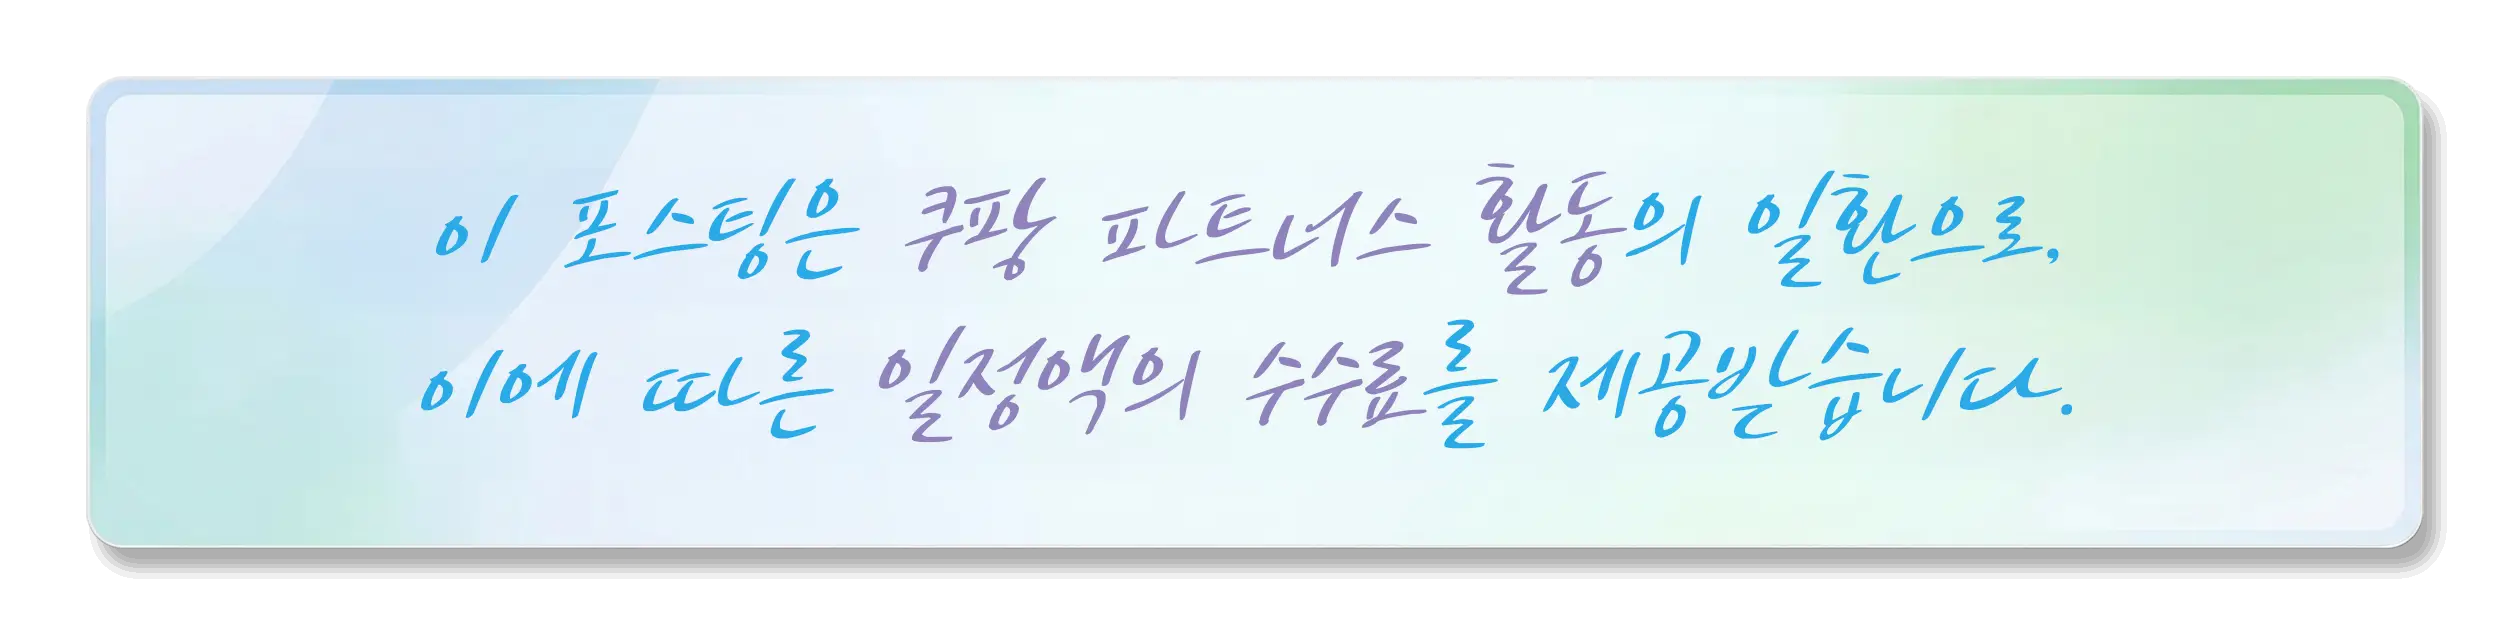 이 포스팅은 쿠팡 파트너스 활동의 일환으로,
이에 따른 일정액의 수수료를 제공받습니다.